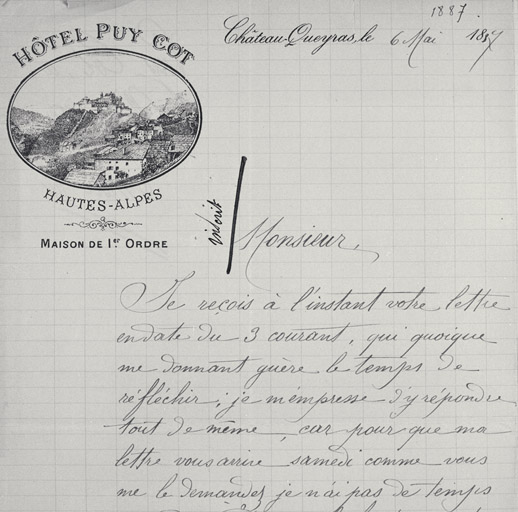 1887.
HÔTEL PUY COT
Château-Queyras, le 6 Mai 1887
HAUTES-ALPES
MAISON DE 1er ORDRE
Monsieur,
Je reçois à l'instant votre lettre
en date du 3 courant, qui quoique
me donnant guère le temps de
réfléchir; je m'empresse d'y répondre
tout de même, car pour que ma
lettre vous arrive samedi comme vous
me le demandez je n'ai pas de temps